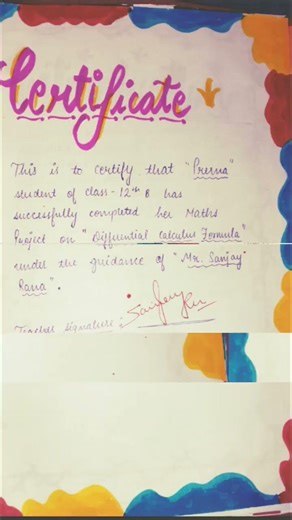 Certificate
This is to certify that "Prerna"
student of class - 12th B has
successfully completed her Maths
Project on "Differential Calculus Formula"
under the guidance of "Mr. Sanjay
Rana".
Teacher Signature :-